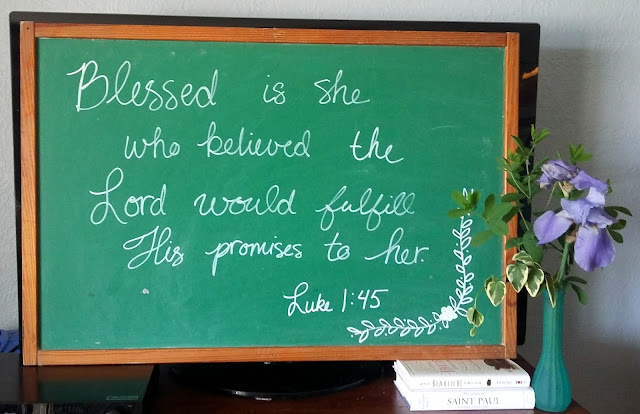 Blessed is she
who believed the
Lord would fulfill
His promises to her.
Luke 1:45
SAINT PAUL